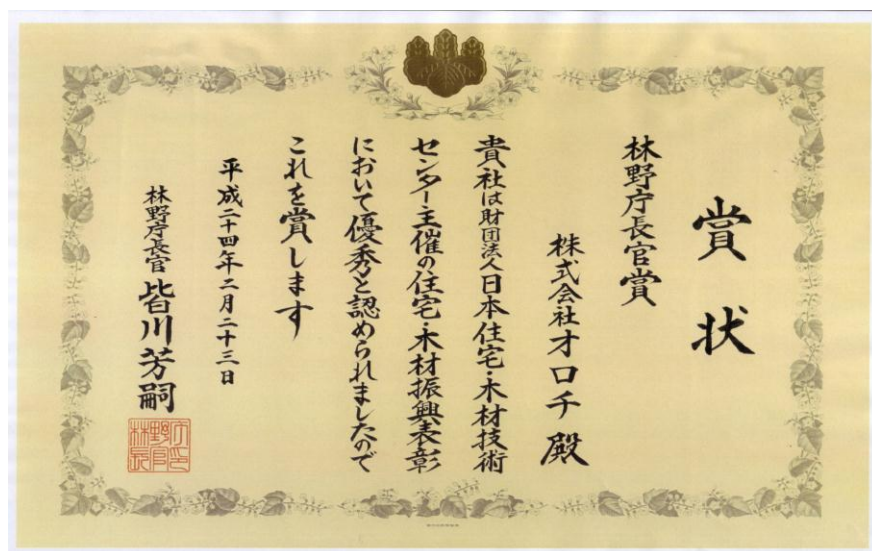 賞状
林野庁長官賞
株式会社オロチ 殿
貴社は財団法人日本住宅・木材技術
センター主催の住宅・木材振興表彰
において優秀と認められましたので
これを賞します
平成二十四年二月二十三日
林野庁長官 皆川芳嗣